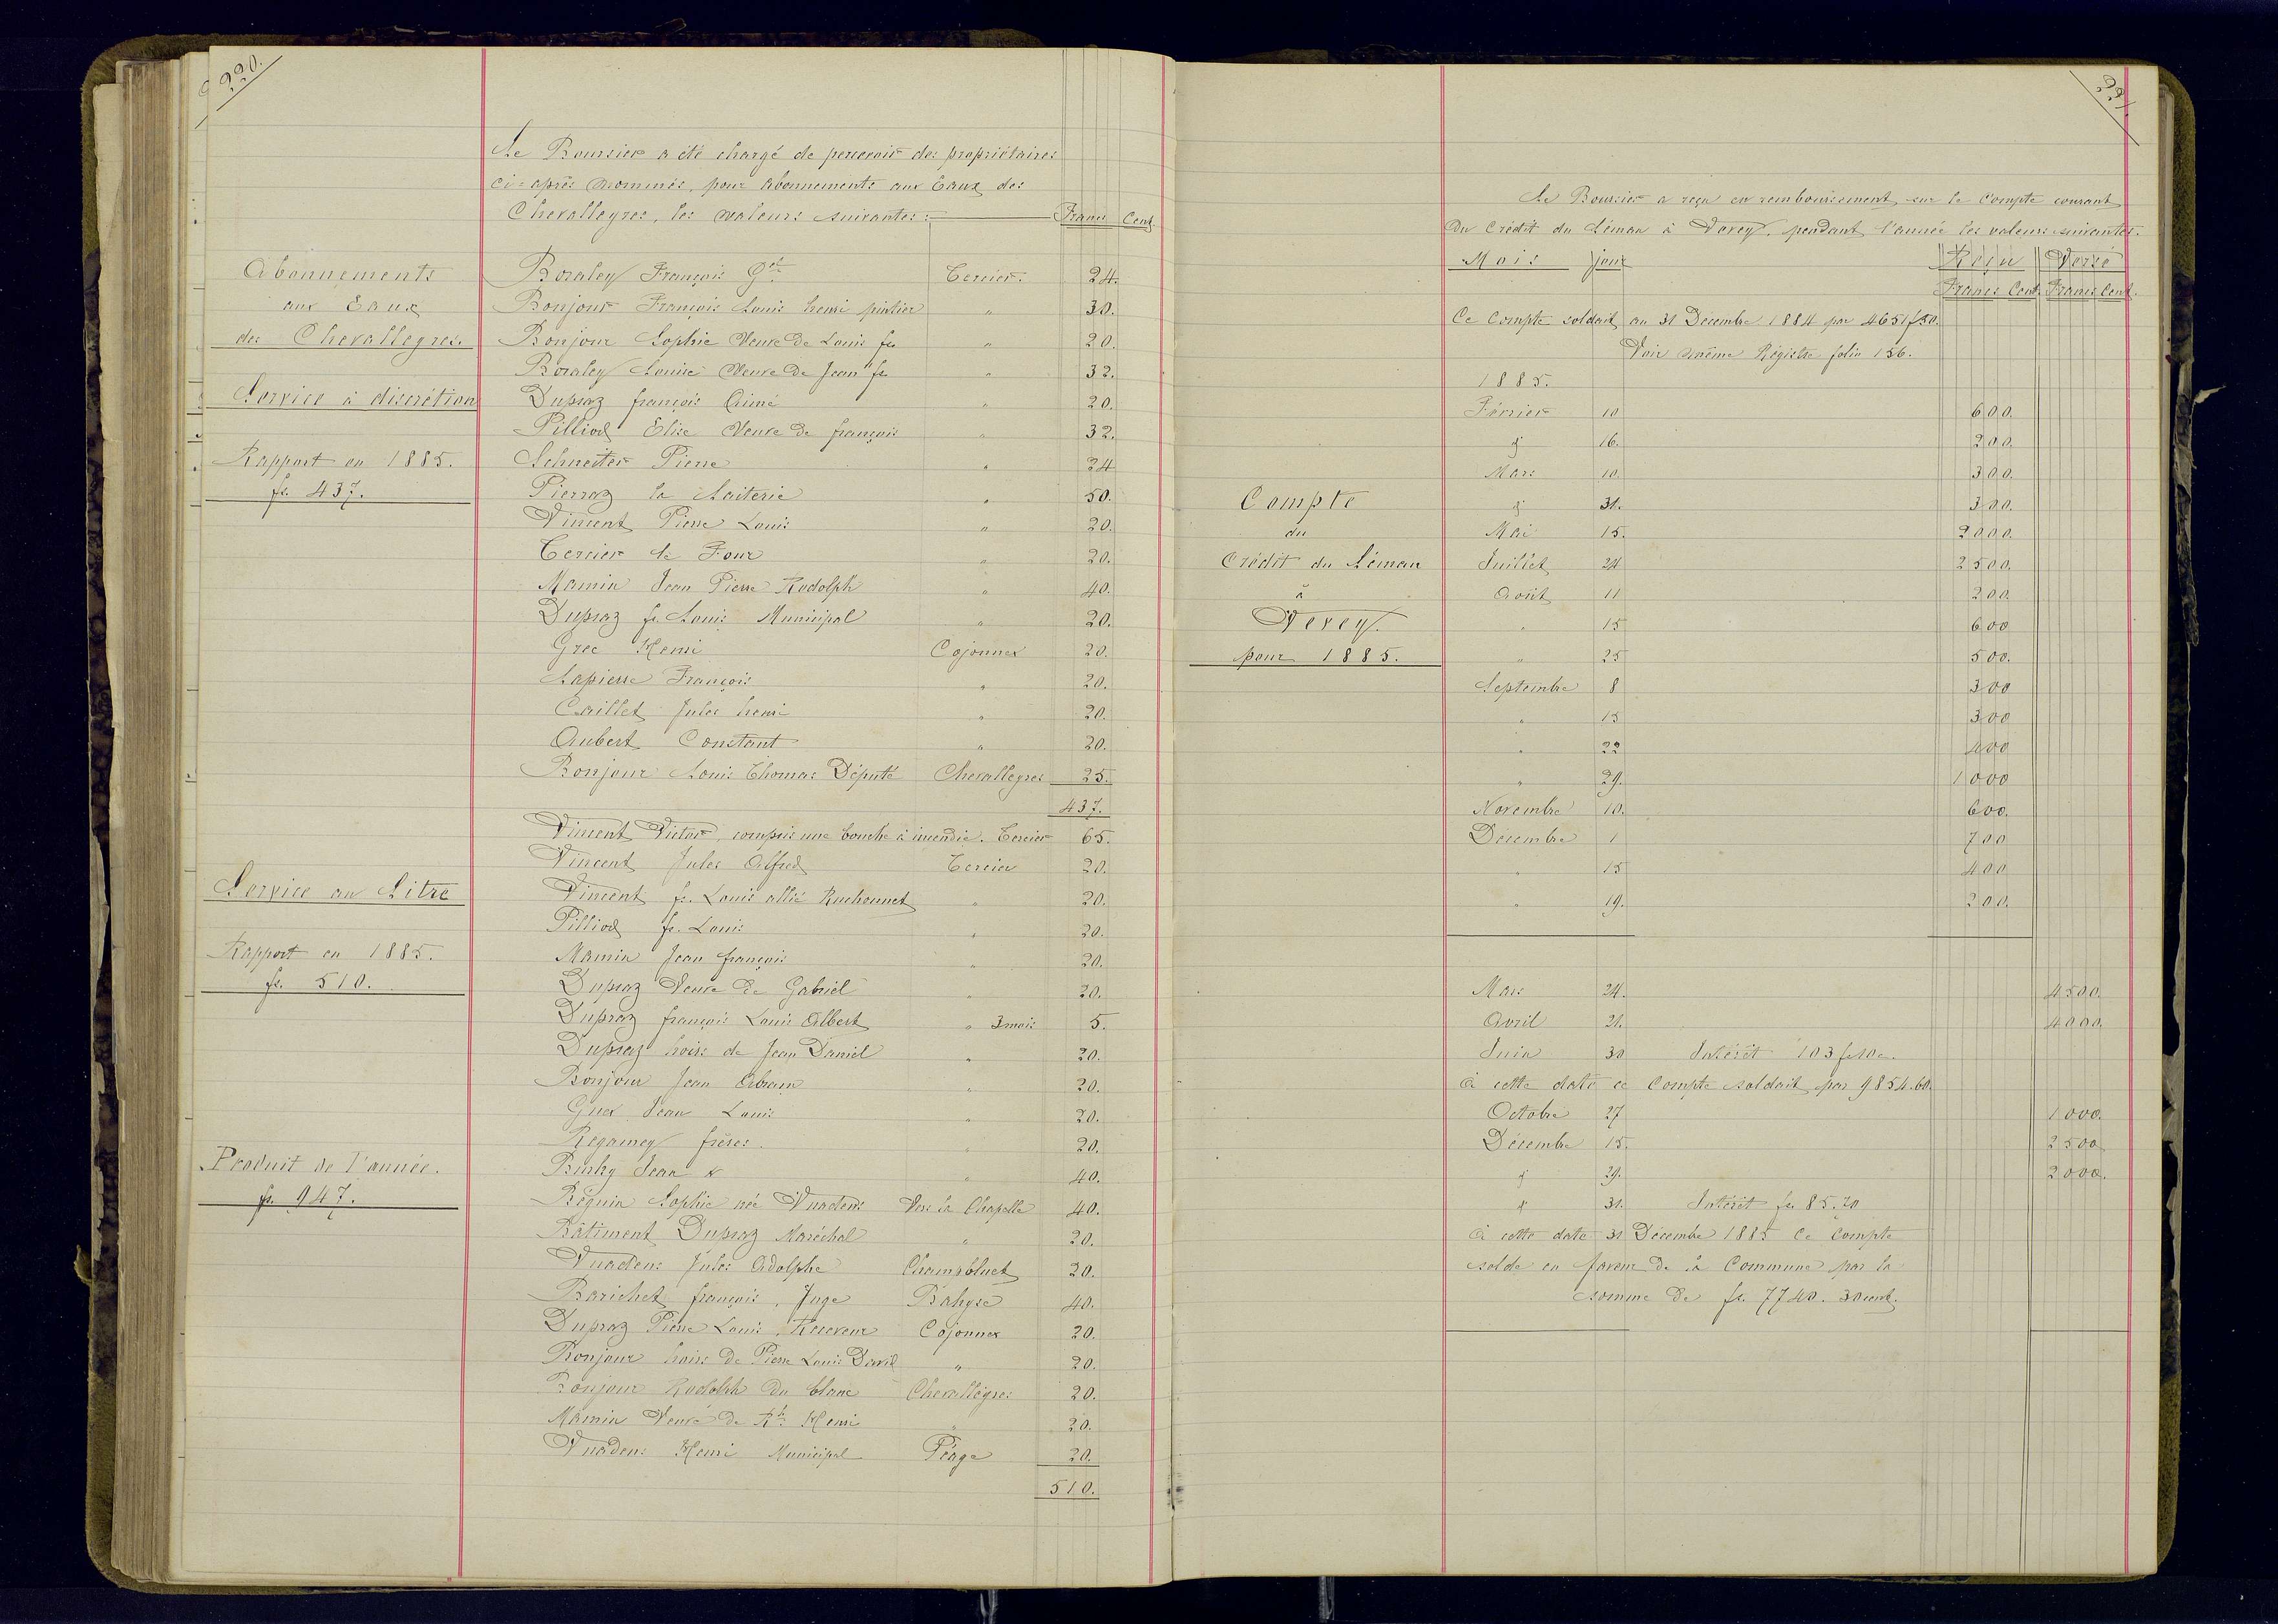 220.
Le Boursier a été chargé de percevoir des propriétaires
ci-après nommés, pour abonnements aux Eaux des
Chevalleyres, les valeurs suivantes: Francs Cent.
Abonnements
aux Eaux
des Chevalleyres.
Service à discrétion
Rapport en 1885.
fr. 437.
Bovaley François Tercier. 24.
Bonjour François Louis henri pintier " 30.
Bonjour Sophie Veuve de Louis fs " 20.
Bovaley Louise Veuve de Jean fs " 32.
Dupraz françois Aimé " 20.
Pilliod Elise Veuve de françois " 32.
Schneiter Pierre " 24
Pierraz la Laiterie " 50.
Vincent Pierre Louis " 20.
Tercier le Four " 20.
Mamin Jean Pierre Rodolph " 40.
Dupraz fs Louis Municipal " 20.
Grec Henri Cojonnex 20.
Lapierre François " 20.
Caillet Jules henri " 20.
Aubert Constant " 20.
Bonjour Louis Thomas Député Chevalleyres 25.
437.
Service au Litre
Rapport en 1885.
fr. 510.
Produit de l'année.
fr. 947.
Vincent Victor, compris une bouche à incendie. Tercier 65.
Vincent Jules Alfred Tercier 20.
Vincent fs. Louis allié Ruchonnet " 20.
Pilliod fs. Louis " 20.
Mamin Jean françois " 20.
Dupraz Veuve de Gabriel " 20.
Dupraz françois Louis Albert " 3 mois 5.
Dupraz hoirs de Jean Daniel " 20.
Bonjour Jean Abram " 20.
Guex Jean Louis " 20.
Regamey frères. " 20.
Jean " 40.
Béguin Sophie née Vuadens Vers la Chapelle 40.
Bâtiment Dupraz Maréchal " 20.
Vuadens Jules Adolphe Chamobluet 20.
Barichet françois, Juge Bahyse 40.
Dupraz Pierre Louis, Receveur Cojonnex 20.
Bonjour hoirs de Pierre Louis David " 20.
Bonjour Rodolph du blanc Chevalleyres 20.
Mamin Veuve de Rh Henri " 20.
Vuadens Henri Municipal Péage 20.
510.
221.
Le Boursier a reçu en remboursement sur le Compte courant
du Crédit du Léman à Vevey, pendant l'année les valeurs suivantes.
Mois jour Reçu Versé
Francs Cent. Francs Cent.
Ce Compte soldait au 31 Décembre 1884 par 4651 f 50.
Voir même Régistre folio 156.
Compte
du
Crédit du Léman
à
Vevey.
pour 1885.
1885.
Février 10 600.
d° 16. 200.
Mars 10. 300.
d° 31. 300.
Mai 15. 2000.
Juillet 24 2500.
Août 11 200.
" 15 600
" 25 500.
Septembre 8 300
" 15 300
" 22 400
" 29. 1000
Novembre 10. 600.
Décembre 1 700
" 15 400
" 19. 200.
Mars 24. 4500.
Avril 21. 4000.
Juin 30 Intérêt 103 fr 10 c.
à cette date ce Compte soldait par 9854.60.
Octobre 27 1000.
Décembre 15. 2500
d° 29. 2000.
d° 31. Intérêt fr 85.20
à cette date 31 Décembre 1885 ce Compte
solde en faveur de la Commune par la
somme de fr. 7740. 30 cent.